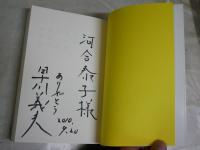 河合泰子様
ありがとう
2010.
9.20
早川義夫